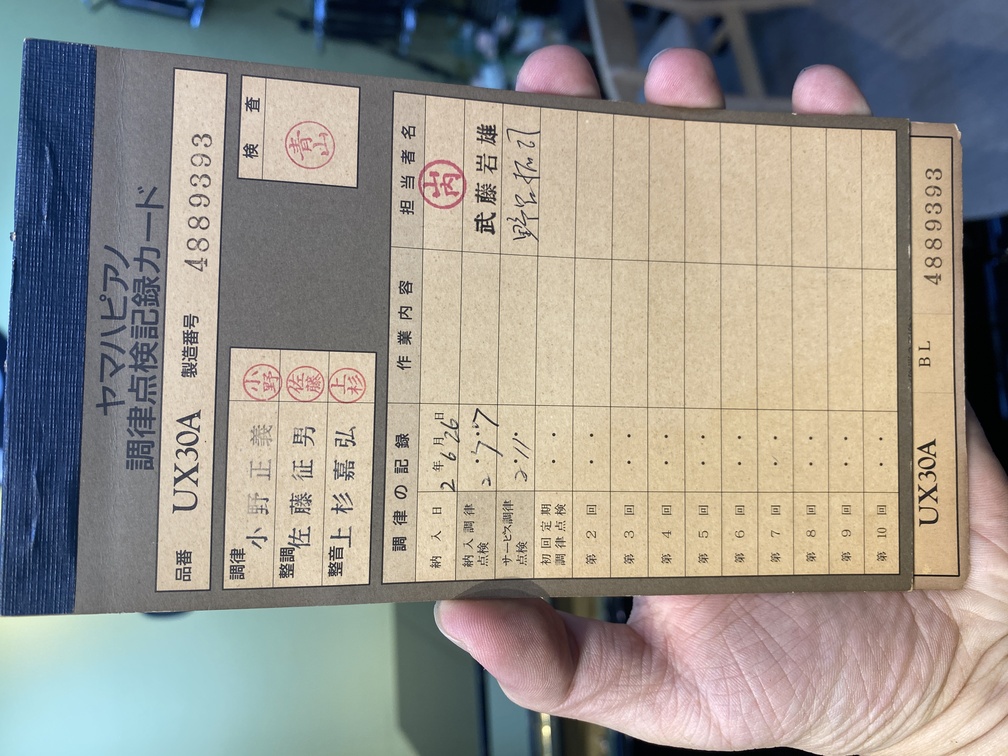 ヤマハピアノ
調律点検記録カード
品番 UX30A 製造番号 4889393
調律 小野正義 小野
整調 佐藤征男 佐藤
整音 上杉嘉弘 上杉
検査
青山
調律の記録 作業内容 担当者名
納入日 2年6月26日 山内
納入調律点検 2・7・7 武藤岩雄
サービス調律点検 2・11・
初回定期調律点検 ・・
第2回 ・・
第3回 ・・
第4回 ・・
第5回 ・・
第6回 ・・
第7回 ・・
第8回 ・・
第9回 ・・
第10回 ・・
UX30A BL 4889393